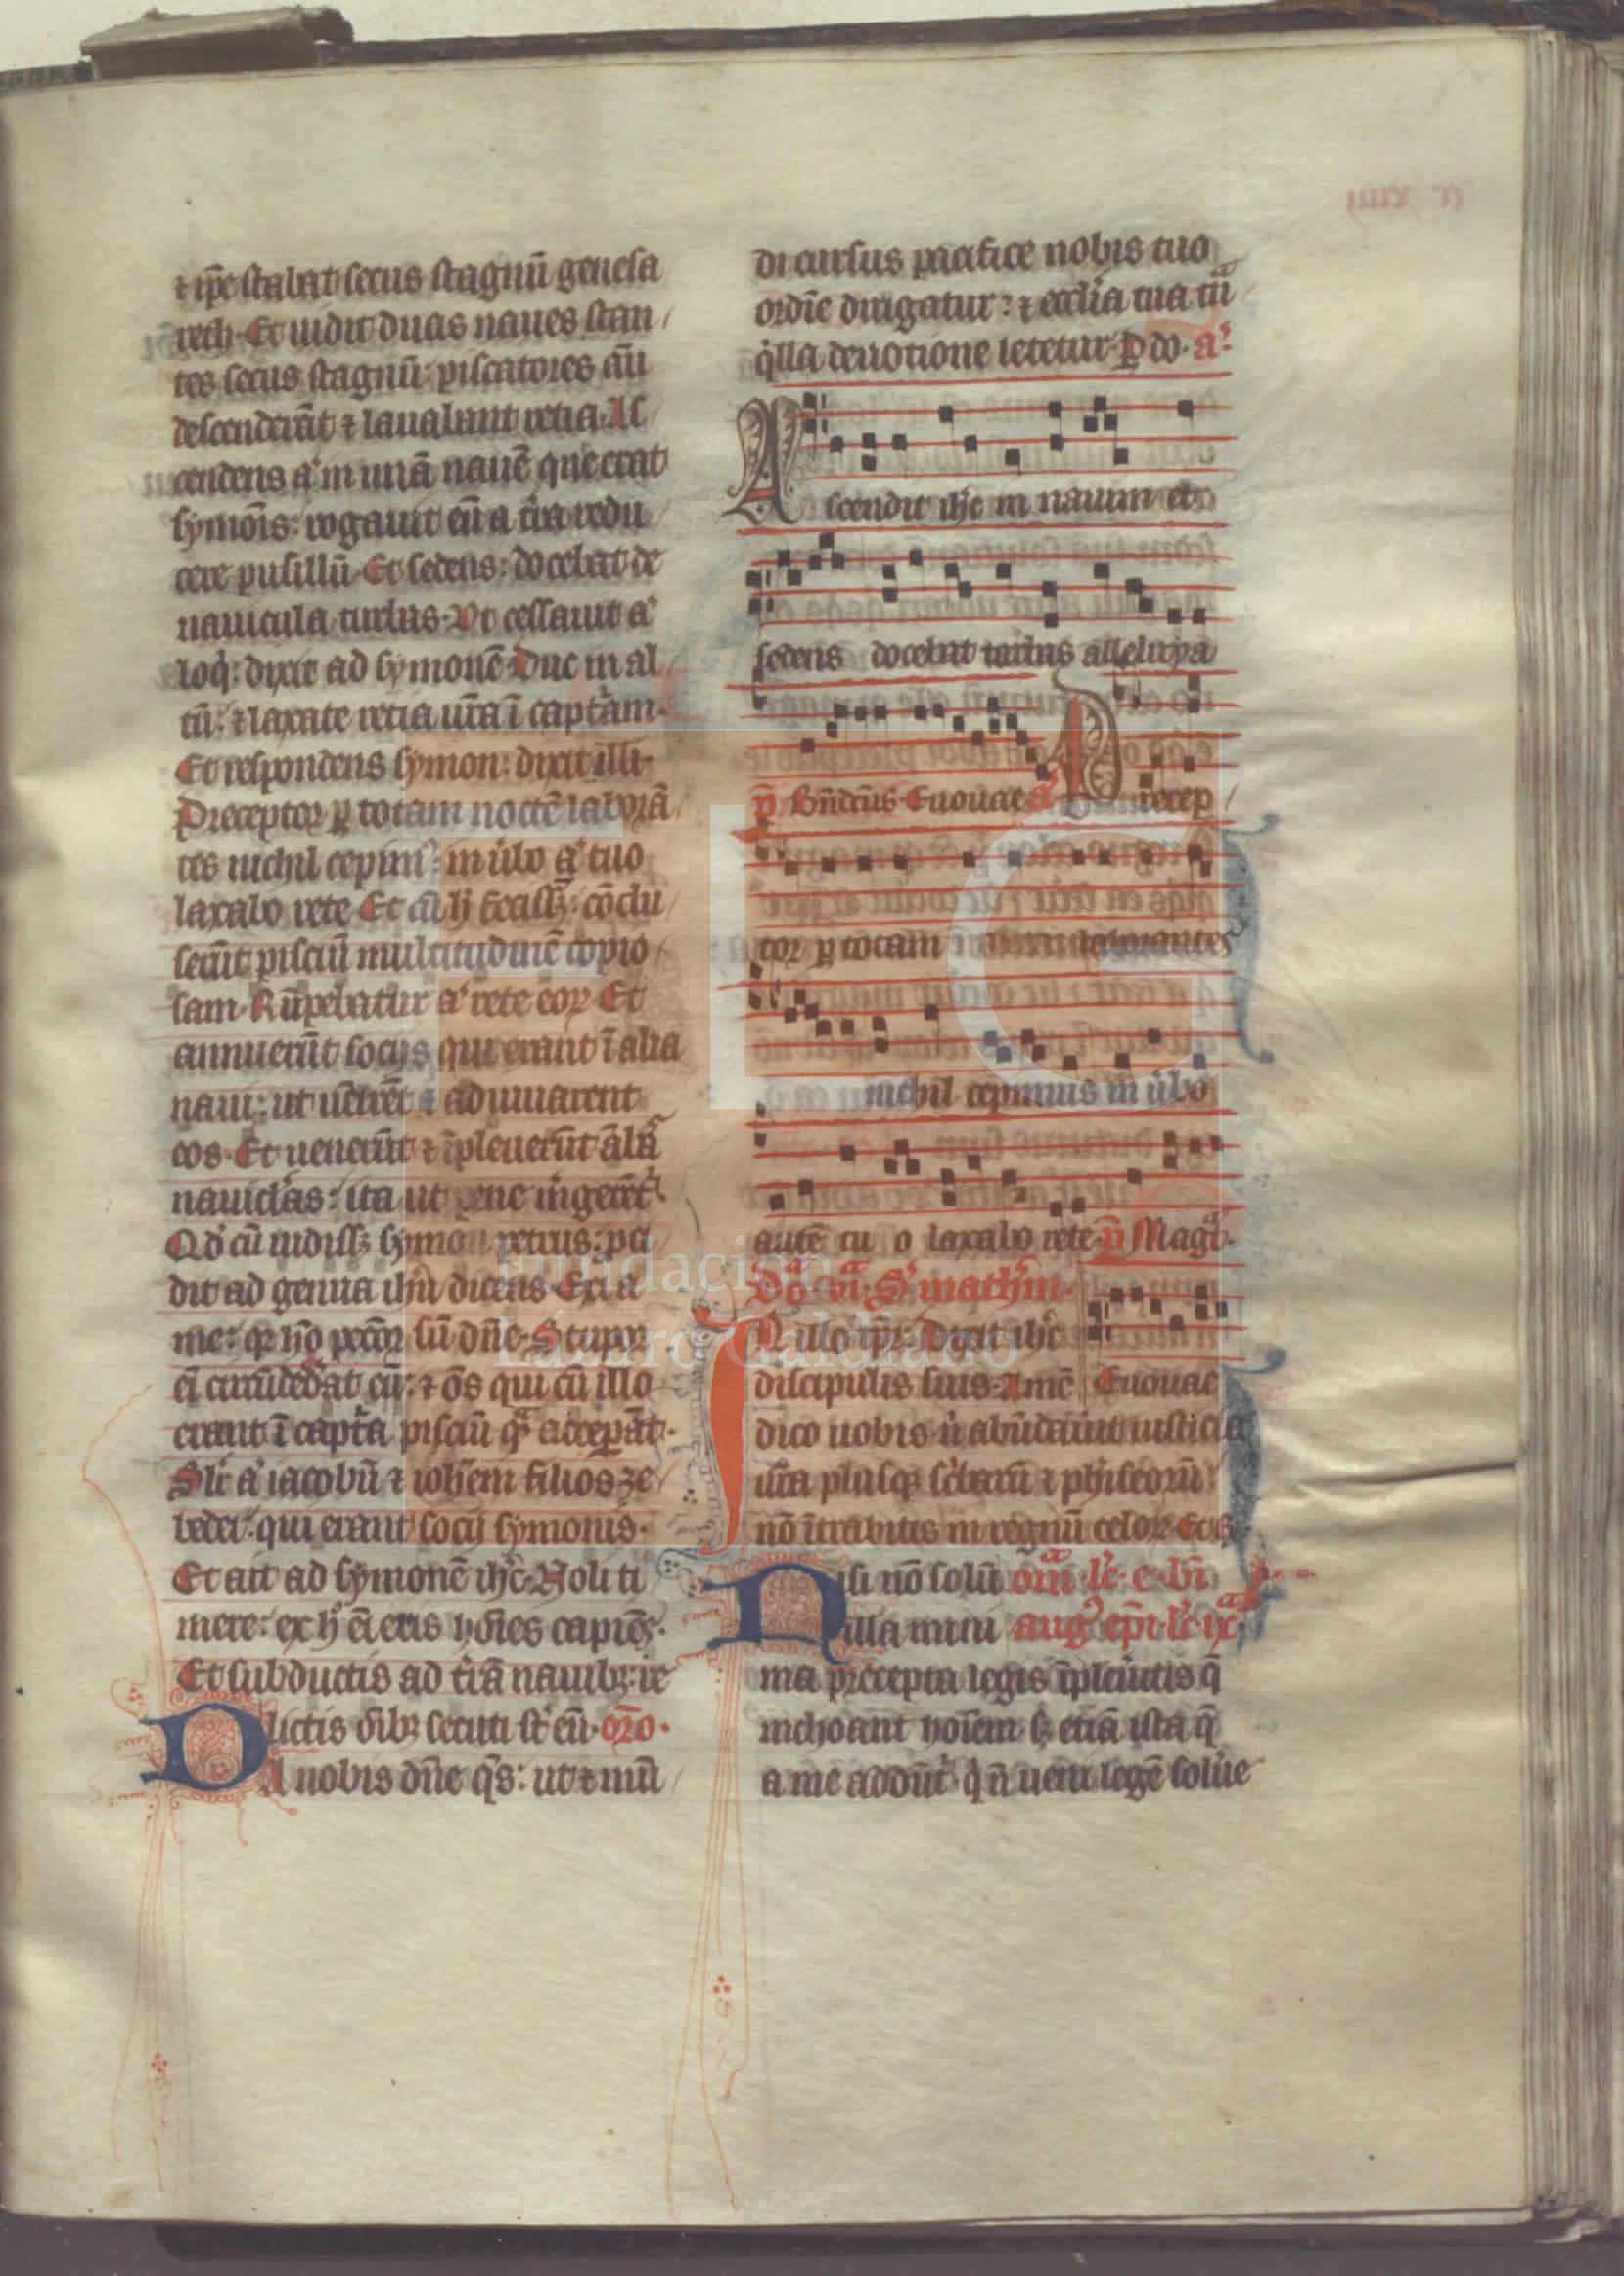 ⁊ ip̄e stabat secus stagnū genesa
reth. Et uidit duas naues stan
tes secus stagnū: piscatores aūt
descenderāt ⁊ lauabant retia. As
cendens aͥ in unā nauē que erat
symōis: rogauit eū a tͥra redu
cere pusillū. Et sedens: docebat de
nauicula turbas. Vt cessauit aͥ
loqͥ: dixit ad symonē. Duc in al
tū: ⁊ laxate retia ur̄a ī captͥam.
Et respondens symon: dixit illi.
Preceptor ꝑ totam noctē laborā
tes nichil cepimꝰ: in ūbo aͥ tuo
laxabo rete. Et cū h̄ fecissꝫ: cōclu
serūt pisciū multitudinē copio
sam. Rūpebatur aͥ rete eoꝝ. Et
annuerūt socijs qui erant ī alia
naui: ut uēirēt ⁊ adiuuarent
eos. Et uenerūt ⁊ īpleuerūt ābas
nauiclās: ita ut pene mͥgerētͬ.
Qd̓ cū uidissꝫ symon petrus: pci
dit ad genua ih̄u dicens. Exi a
me: qꝛ hō pctōr sū dn̄e. Stupor
ei̅ circūdedͣat eū: ⁊ oēs qui cū illo
erant ī captͥa pisciū qͣ̄ ceperāt.
Silr̄ aͥ iacobū ⁊ ioh̄em filios ze
bedei: qui erant socij symonis.
Et ait ad symonē ih̄c. Noli ti
mere: ex h̄ ei̅ eris hoīes capiēs.
Et subductis ad tͥrā nauibꝫ: re
lictis oīibꝫ secuti st̄ eū. or̄o.
DA nobis dn̄e qͣs: ut ⁊ mū
di cursus pacifice nobis tuo
ordīe dirigatur: ⁊ ecclīa tua tͣ̄
qͥlla deuotione letetur. P̱ do. aͣ.
Ascendit ih̄c in nauim et
sedens docebat turbas alleluya
p̄. Bn̄dcūs. Euouae. a. Precep
tor ꝑ totam noctem laborantes
nichil cepimus in ūbo
autē tuo laxabo rete. p̄. Magͣt.
Dōᵃ. vi. S. mathm̄.
IN illo tp̄r: Dixit ih̄c
discipulis suis. Amē Euouae
dico uobis. nͥ abūdauͥit iusticia
ur̄a plusqͣꝫ scͥbarū ⁊ ph̄iseorū:
nō ītrabitis in regnū celoꝝ. Et r̄.
Nisi nō solū om̄ᵃ. lc̄. e. bī.
illa mini augꝰ. ep̄i. lc̄. ixᵃ.
ma precepta legis īpleuͥitis q̄
inchoant hoīem. sꝫ etiā ista q̄
a me addūtͬ. qͥ n̄ ueni legē soluͥe